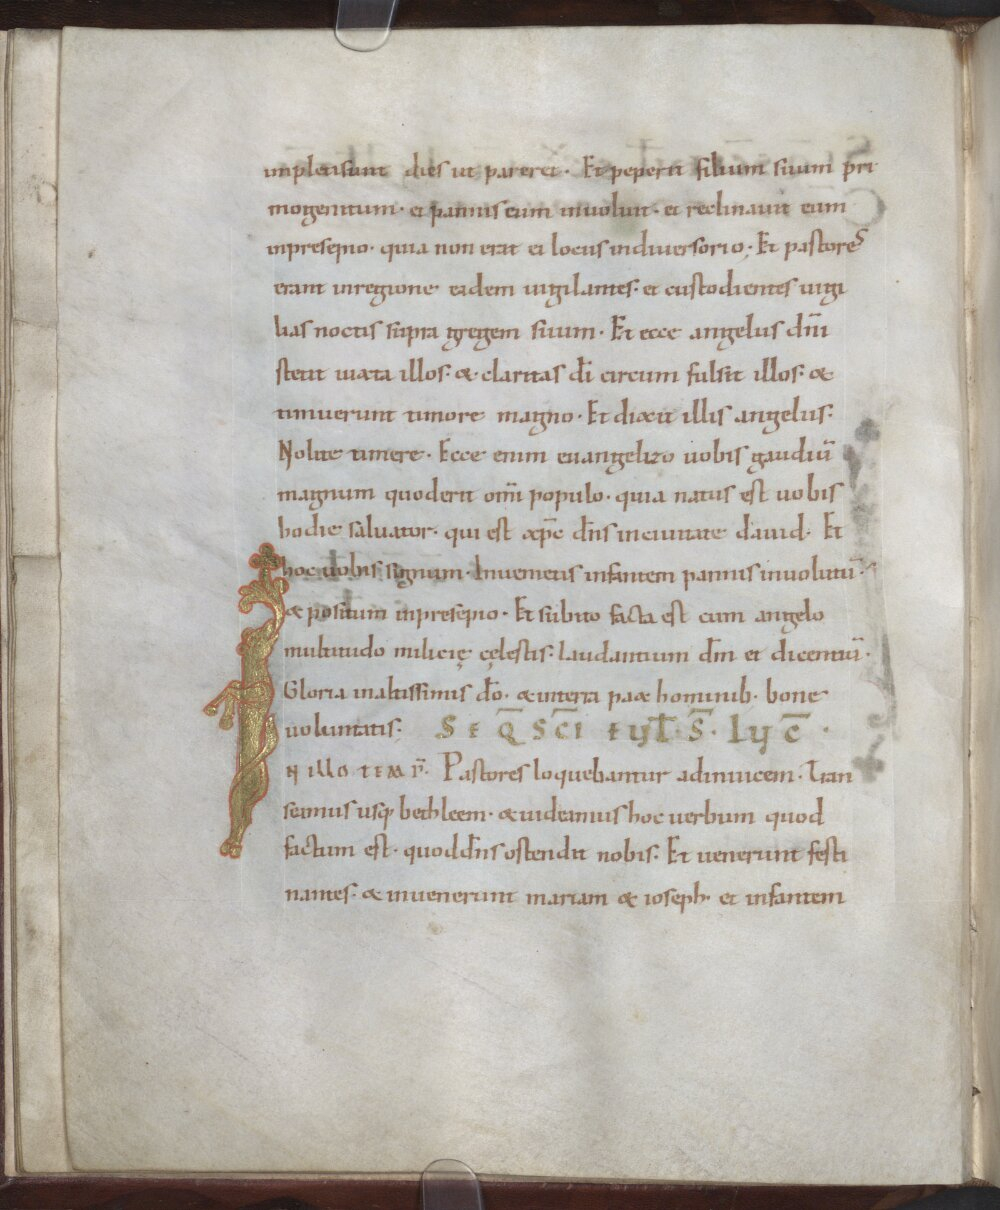 impleti sunt dies ut pareret. Et peperit filium suum pri
mogenitum. et pannis eum inuoluit. et reclinauit eum
inpresepio. quia non erat ei locus indiuersorio; Et pastores
erant inregione eadem uigilantes. et custodientes uigi
lias noctis supra gregem suum. Et ecce angelus dñi
stetit iuxta illos. & claritas dī circum fulsit illos. &
timuerunt timore magno. Et dixit illis angelus.
Nolite timere. Ecce enim euangelizo uobis gaudiū
magnum quoderit omī populo. quia natus est uobis
hodie saluator. qui est xp̄c dn̄s inciuitate dauid. Et
hoc uobis signum. Inuenietis infantem pannis inuolutū.
& positum inpresepio. Et subito facta est cum angelo
multitudo milicię cęlestis. laudantium dm̄ et dicentiū.
Gloria inaltissimis dō. & interra pax hominib. bone
uoluntatis. SEQ̄ SC̄I EỤḸ S̄. LỤC̄.
IN illo temp̄. Pastores loquebantur adinuicem. Tran
seamus usq; bethleem. & uideamus hoc uerbum quod
factum est. quod dn̄s ostendit nobis. Et uenerunt festi
nantes. & inuenerunt mariam & ioseph. et infantem